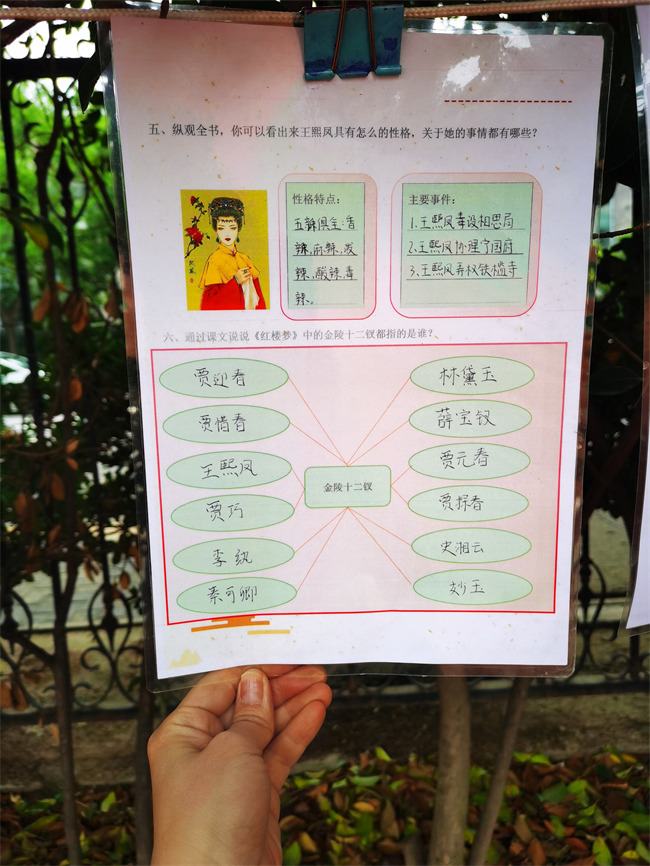 五、纵观全书，你可以看出来王熙凤具有怎么的性格，关于她的事情都有哪些？
性格特点：
五辣俱全：香
辣、麻辣、泼
辣、酸辣、毒
辣。
主要事件：
1.王熙凤毒设相思局
2.王熙凤协理宁国府
3.王熙凤弄权铁槛寺
六、通过课文说说《红楼梦》中的金陵十二钗都指的是谁？
贾迎春
贾惜春
王熙凤
贾巧
李纨
秦可卿
金陵十二钗
林黛玉
薛宝钗
贾元春
贾探春
史湘云
妙玉